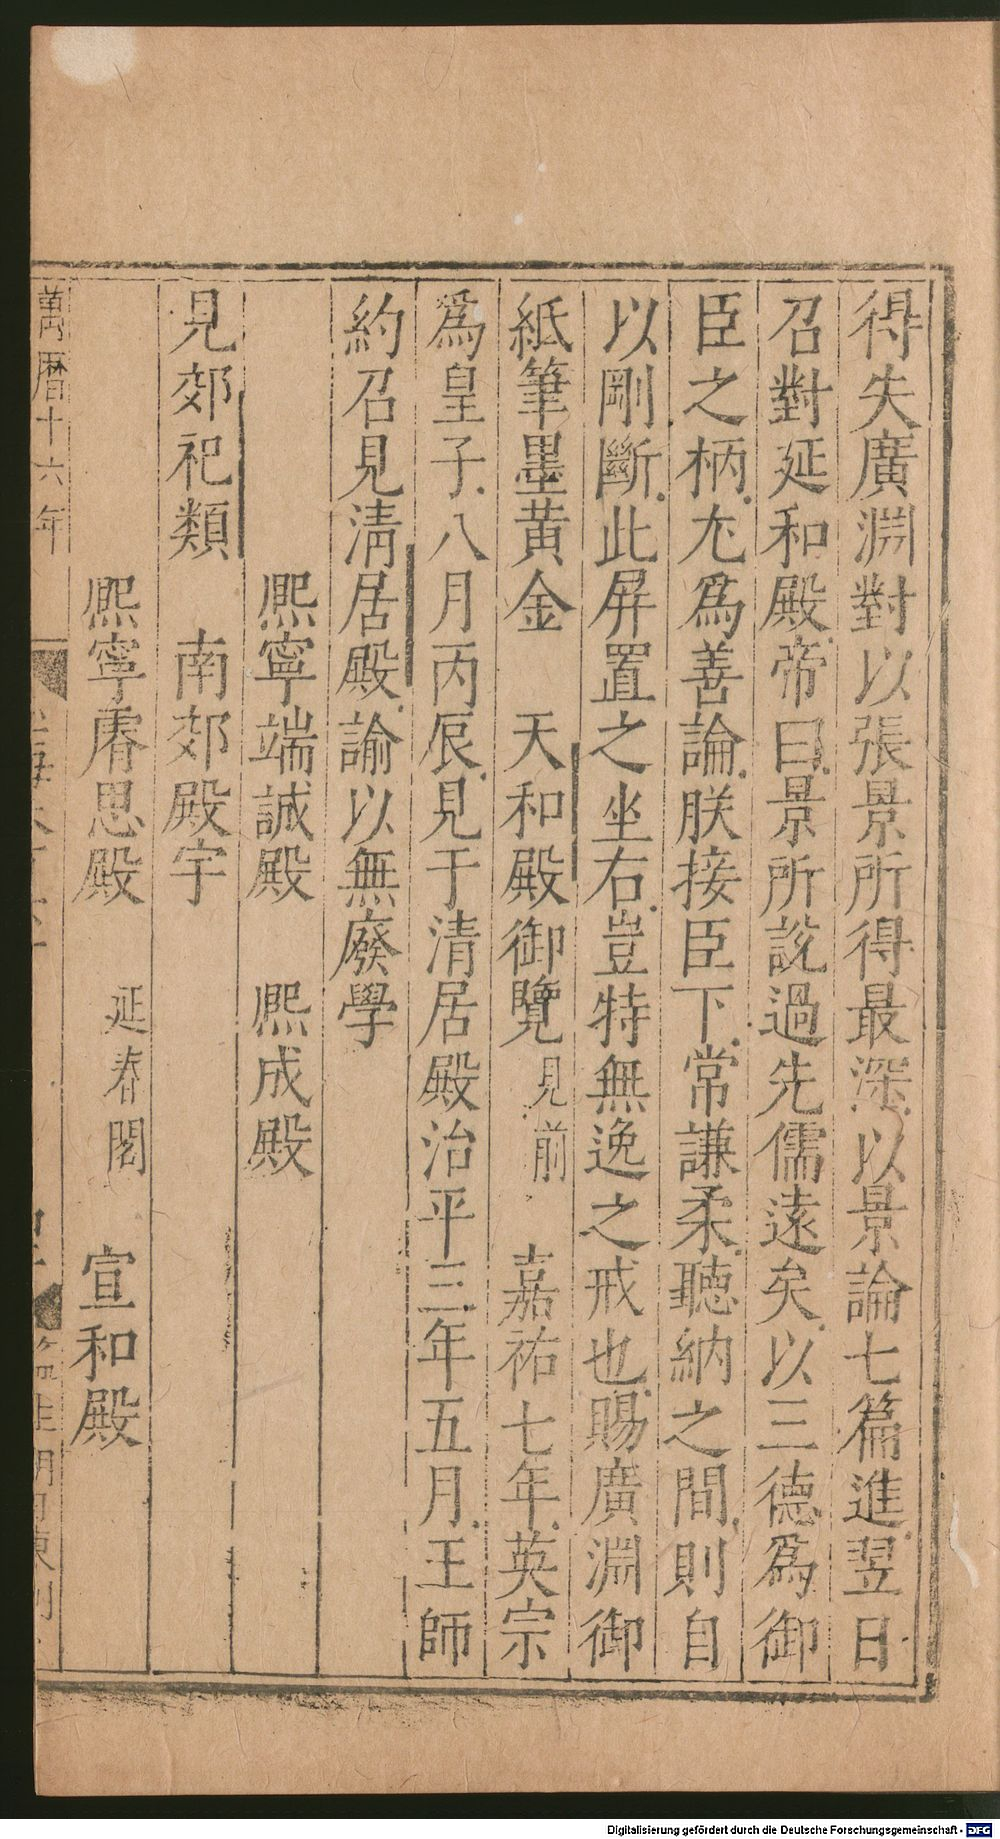 得失廣淵對以張景所得最深以景論七篇進翌日
召對延和殿帝曰景所說過先儒遠矣以三德爲御
臣之柄尢爲善論朕接臣下常謙柔聽納之間則自
以剛斷此屛置之坐右豈特無逸之戒也賜廣淵御
紙筆墨黃金　天和殿御覽見前　嘉祐七年英宗
爲皇子八月丙辰見于清居殿治平三年五月王師
約召見淸居殿諭以無廢學
熈寧端誠殿　熈成殿
見郊祀類　南郊殿宇
熈寧睿思殿　延春閣　宣和殿
萬曆十六年
Digitalisierung gefördert durch die Deutsche Forschungsgemeinschaft - DFG